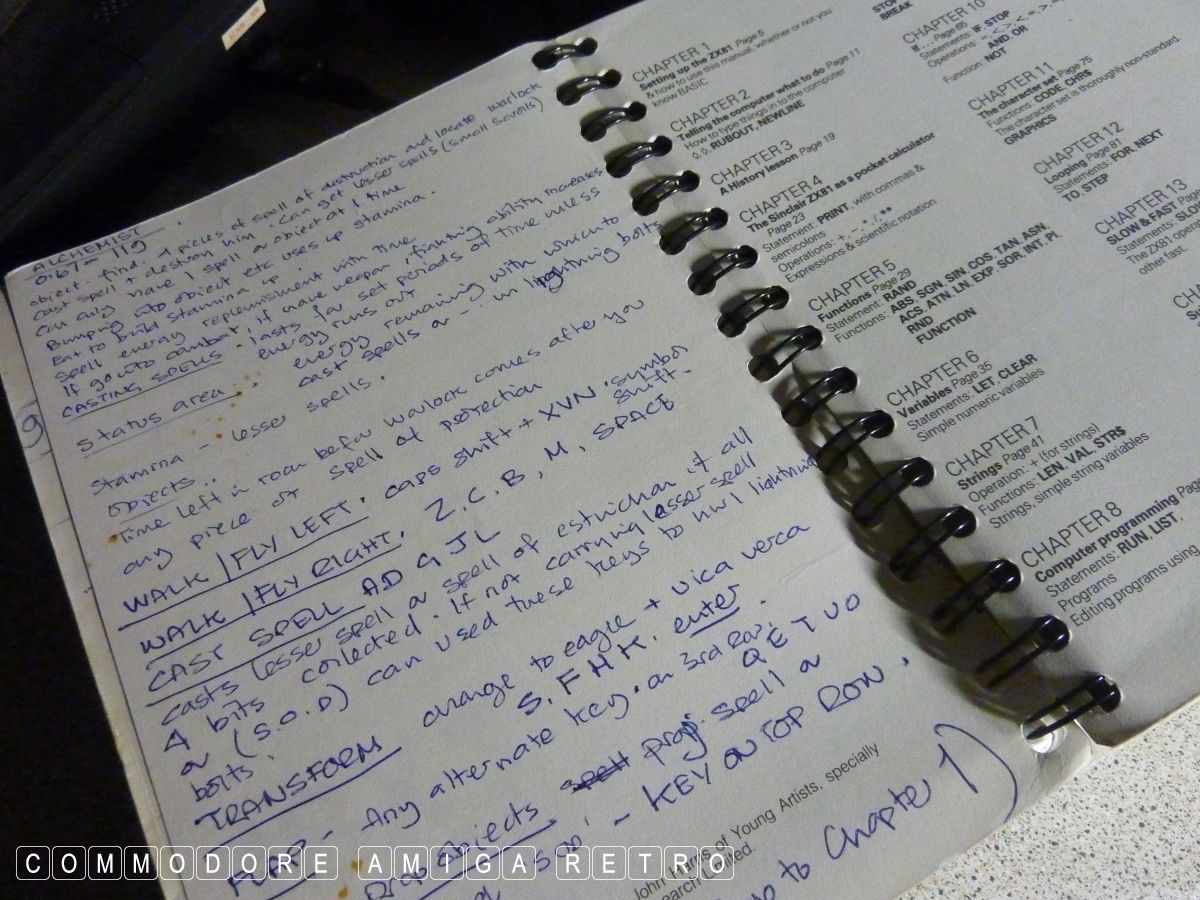 ALCHEMIST.
0167- 119
object. find. 4 pieces of spell of destruction and locate warlock
cast spell + destroy him. can get lesser spells (small scrolls)
can only have 1 spell or object at 1 time
Bumping into object etc uses up stamina.
Eat to build stamina up.
spell energy replenishment with time
If go into combat, if have weapon, fighting ability increases
CASTING SPELLS. lasts for set periods of time unless
energy runs out
Status area.. energy remaining with which to
cast spells or - in lightning bolts
Stamina - lesser spells.
objects..
Time left in room before warlock comes after you
any piece of spell of protection
WALK / FLY LEFT. caps shift + XVN symbol
shift.
WALK / FLY RIGHT. Z, C, B, M, SPACE
CAST SPELL ADGJL
casts lesser spell or spell of if all
4 bits collected. If not carrying lesser spell
or (S.O.D) can used these keys to hurl lightning
bolts.
TRANSFORM change to eagle + vica verca
S, F H K. enter
FLAP - Any alternate key. on 3rd Row.
Q E T U O
Drop objects. spell or
- KEY ON TOP ROW.
to Chapter 1)
John Harris of Young Artists, specially
Limited.
CHAPTER 1
Setting up the ZX81 Page 5
& how to use this manual, whether or not you
know BASIC
CHAPTER 2
Telling the computer what to do Page 11
How to type things in to the computer
RUBOUT, NEWLINE
CHAPTER 3
A History lesson Page 19
CHAPTER 4
The Sinclair ZX81 as a pocket calculator
Page 23
Statement: PRINT, with commas &
semicolons
Operations: +, -, *, /, **
Expressions & scientific notation
CHAPTER 5
Functions Page 29
Statement: RAND
Functions: ABS, SGN, SIN, COS, TAN, ASN,
ACS, ATN, LN, EXP, SQR, INT, PI,
RND
FUNCTION
CHAPTER 6
Variables Page 35
Statements: LET, CLEAR
Simple numeric variables
CHAPTER 7
Strings Page 41
Operation: + (for strings)
Functions: LEN, VAL, STR$
Strings, simple string variables
CHAPTER 8
Computer programming Page
Statements: RUN, LIST,
Programs
Editing programs using
STOP
BREAK
CHAPTER 10
If... Page 65
Statements: IF, STOP
Operations: =, <, >, <=, >=,
AND, OR
Function: NOT
CHAPTER 11
The character set Page 75
Functions: CODE, CHR$
The character set is thoroughly non-standard.
GRAPHICS
CHAPTER 12
Looping Page 81
Statements: FOR, NEXT
TO, STEP
CHAPTER 13
SLOW & FAST Pag
Statements: SLO
The ZX81 oper
other fast.
COMMODORE AMIGA RETRO